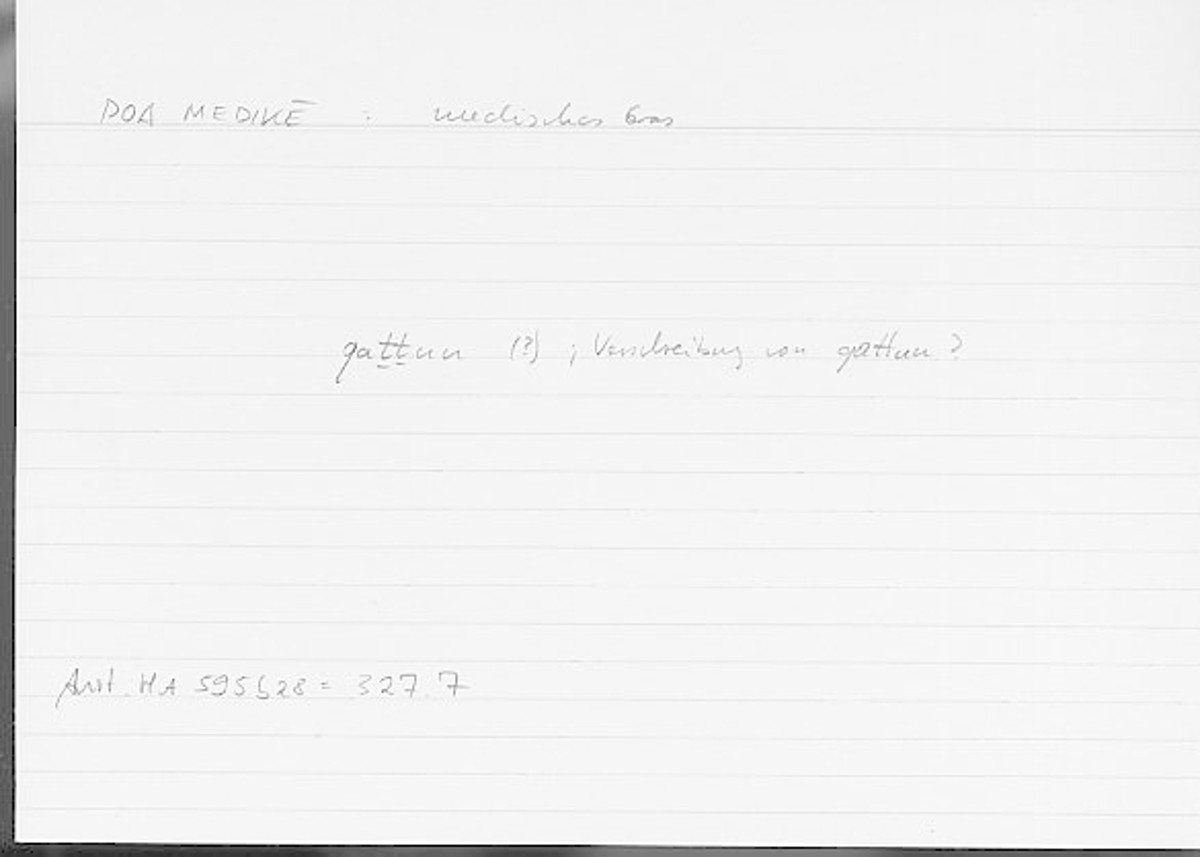 POA MEDIKĒ : medisches Gras
qaṯṯun (?) ; Verschreibung von qattun ?
Arist. HA 595b28 = 327.7